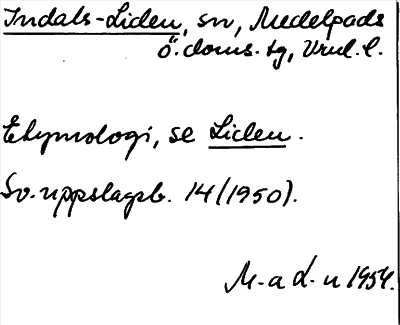 Indals-Liden, sn, Medelpads
Ö. doms. tg, Vnl. l.
Etymologi, se Liden.
Sv. uppslagsb. 14 (1950).
M. a d. n 1954.